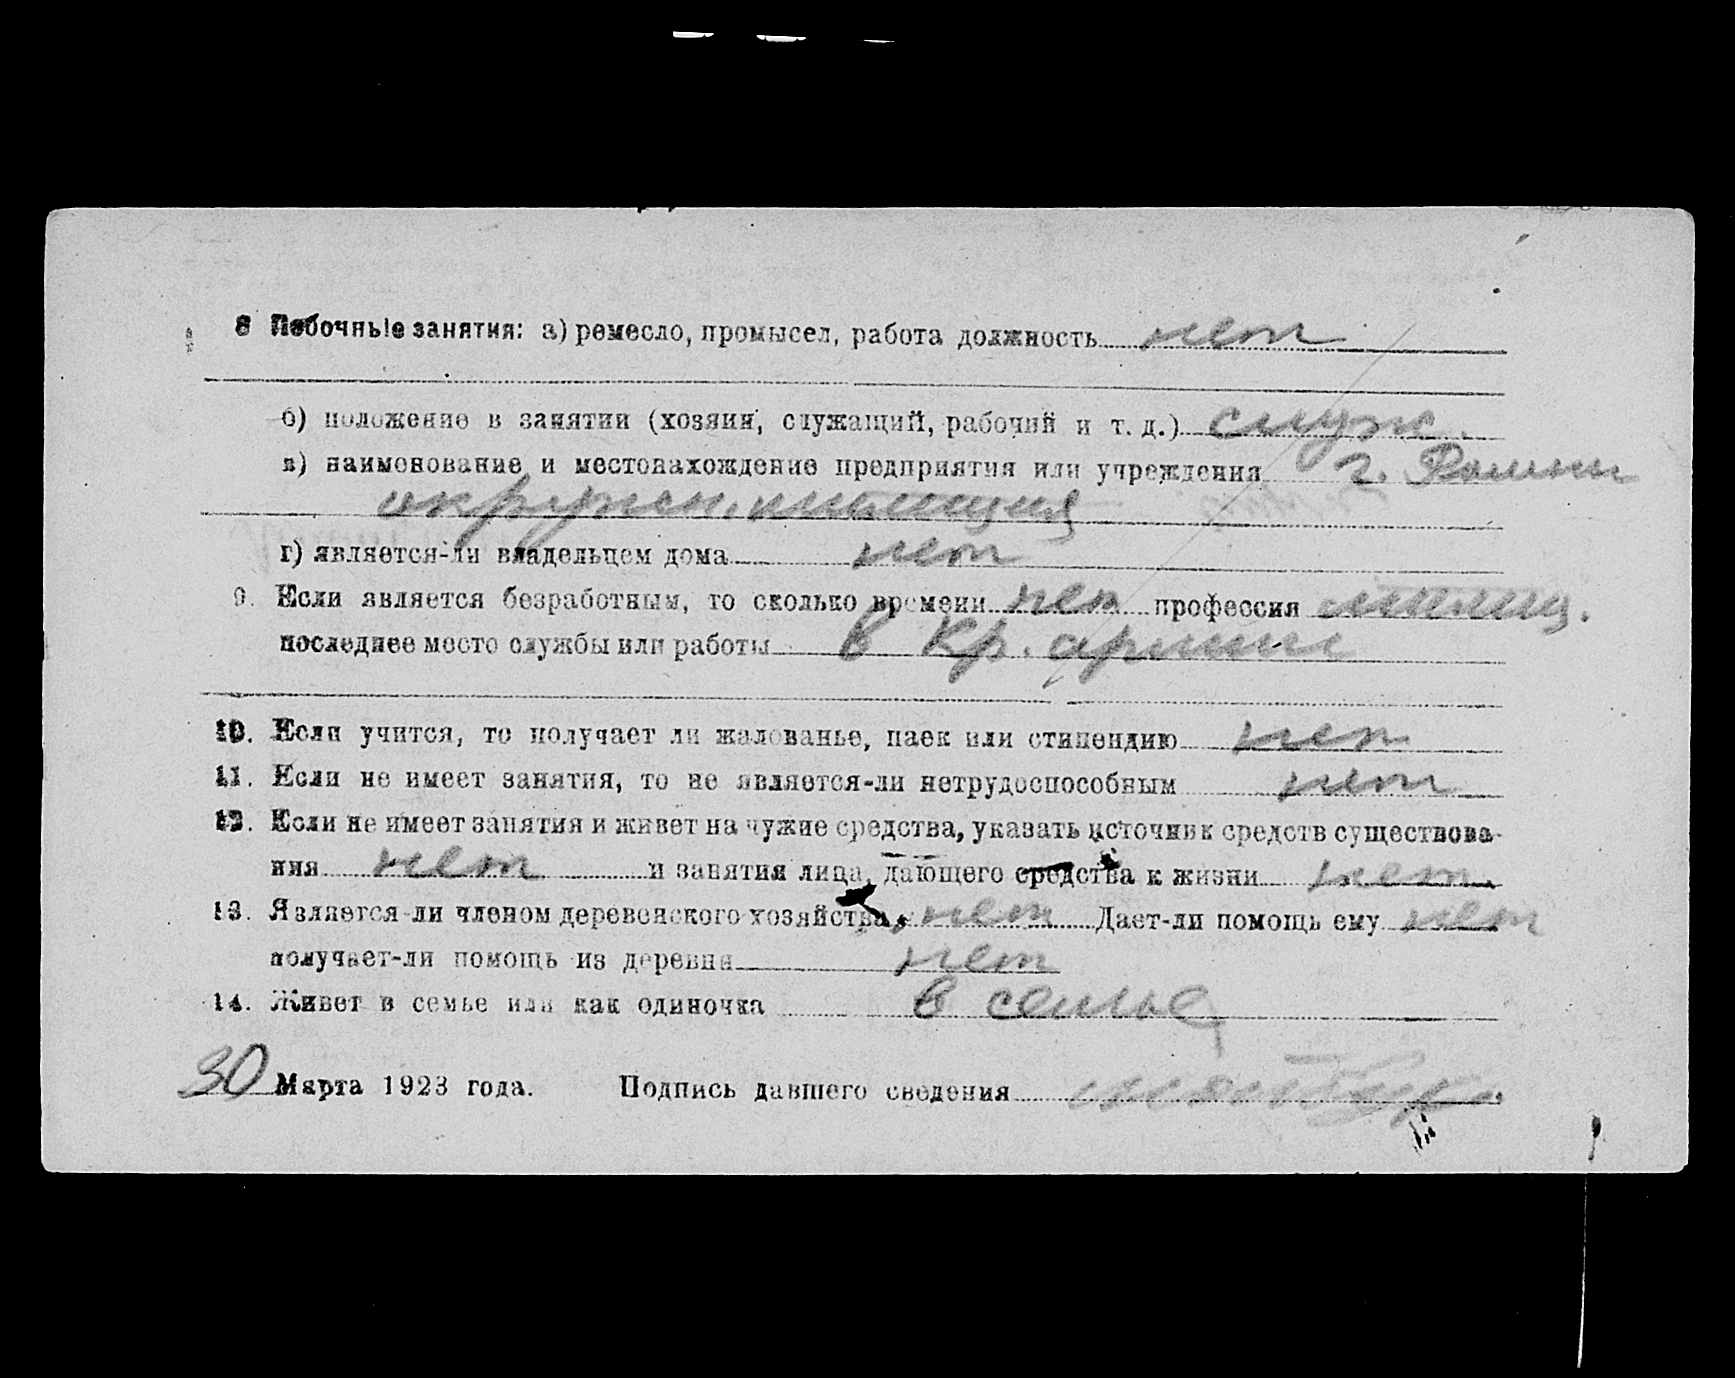 8 Побочные занятия: а) ремесло, промысел, работа должность нет
б) положение в занятии (хозяин, служащий, рабочий и т. д.) служ.
в) наименование и местонахождение предприятия или учреждения г.
окружн. милиция
г) является-ли владельцем дома нет
9. Если является безработным, то сколько времени нет профессия милиц.
последнее место службы или работы в Кр. армии
10. Если учится, то получает ли жалованье, паек или стипендию нет
11. Если не имеет занятия, то не является-ли нетрудоспособным нет
12. Если не имеет занятия и живет на чужие средства, указать источник средств существова-
ния нет и занятия лица, дающего средства к жизни нет.
13. Является-ли членом деревенского хозяйства, нет Дает-ли помощь ему нет
получает-ли помощь из деревни нет
14. Живет в семье или как одиночка в семье
30 Марта 1923 года. Подпись давшего сведения